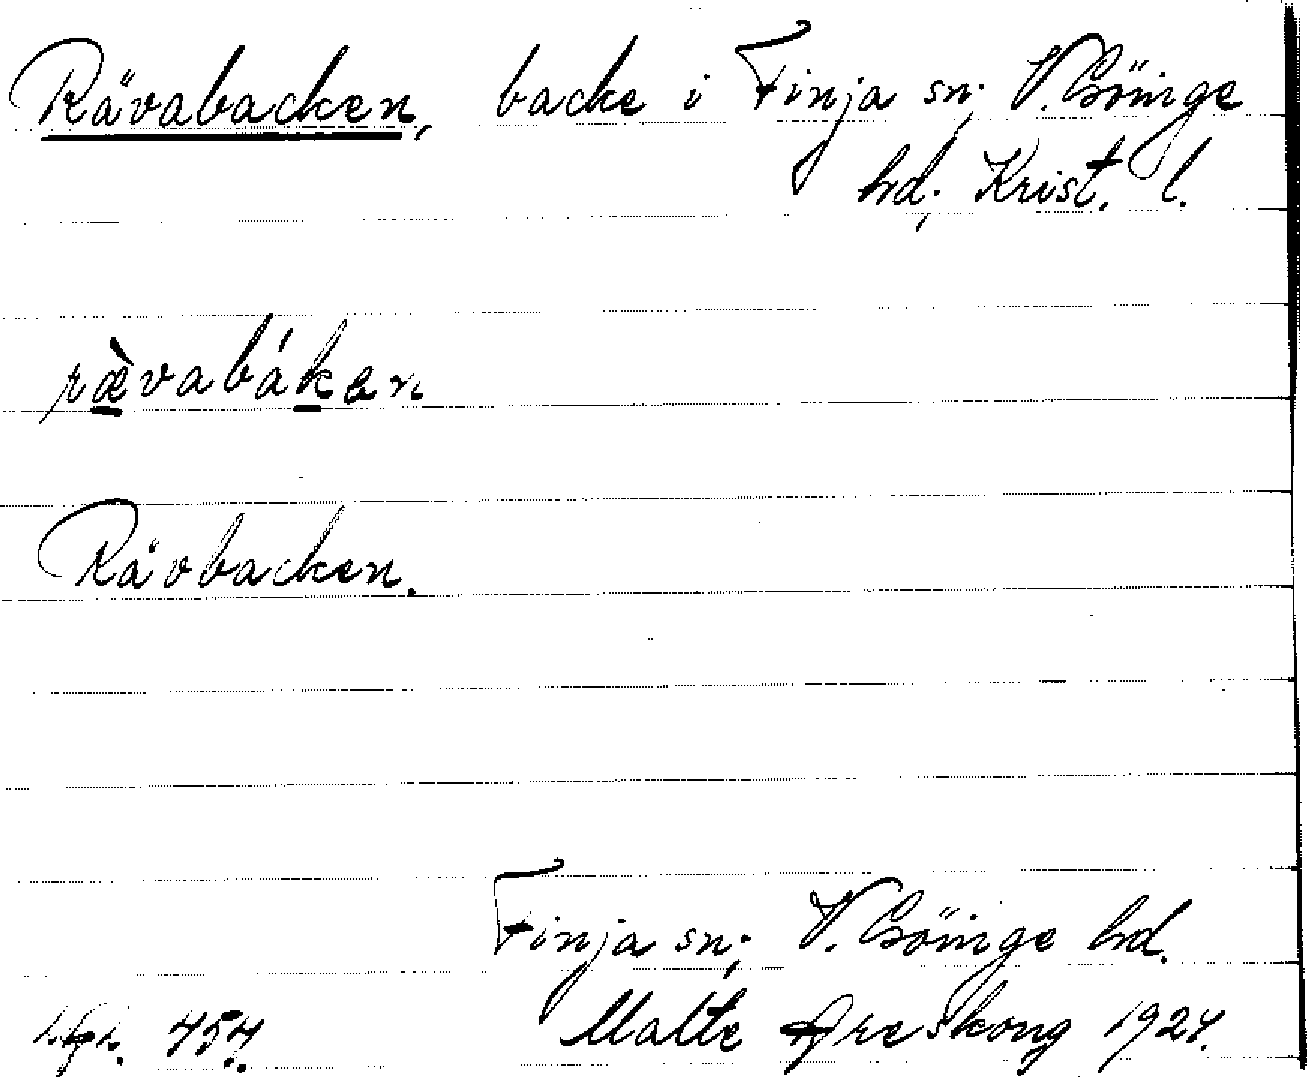 Rävabacken, backe i Finja sn; V. Göinge
hd; Krist. l.
rævabákan
Rävbacken.
Finja sn; V. Göinge hd.
454. Malte Areskong 1924.